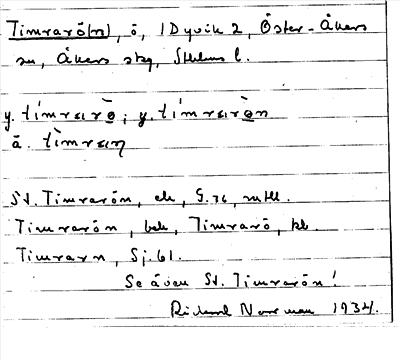 Timrarö(n), ö, i Dyvik 2, Öster-Åkers
sn, Åkers skg, Sthlms l.
y. tímrarö̀; y. tímrarö̀n
ä. tìmrarn
St. Timrarön, ek, G.76, mtl.
Timrarön, bek, Timrarö, kb.
Timrarn, Sj.61.
Se även St. Timrarön!
Rickard Norrman 1934.